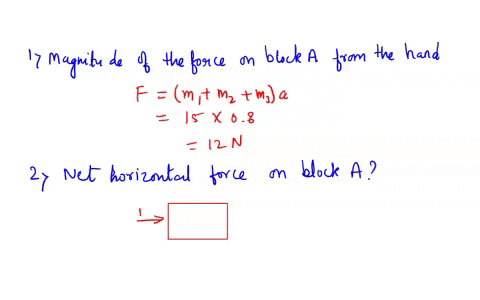 1) Magnitude of the force on block A from the hand
F = (m₁ + m₂ + m₃)a
= 15 × 0.8
= 12 N
2) Net horizontal force on block A?
1